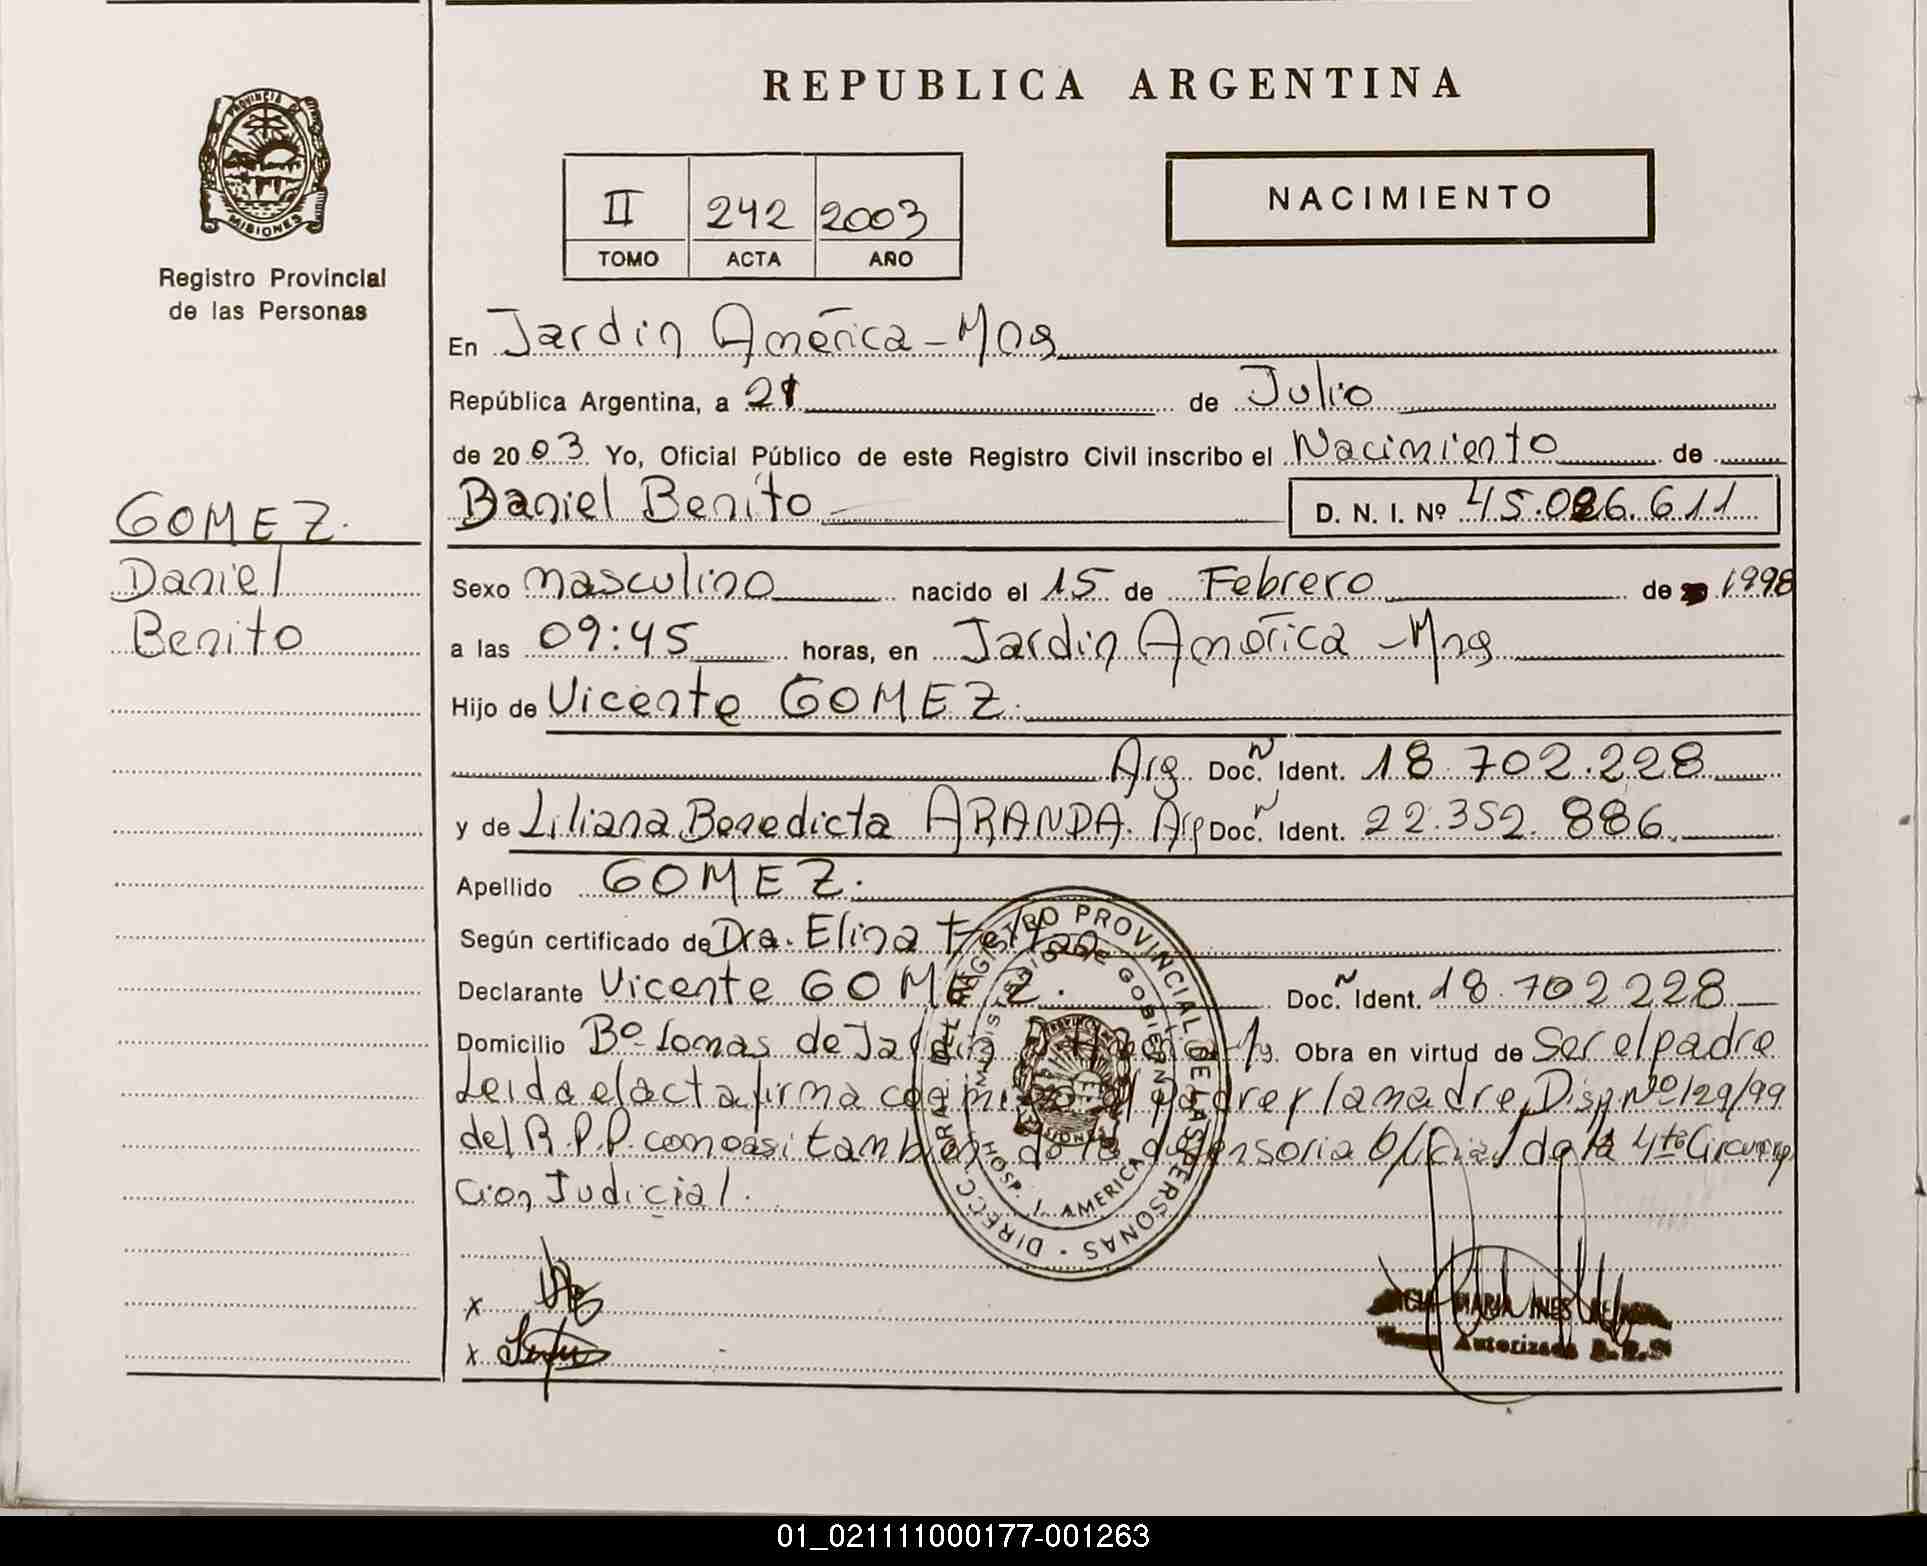 REPUBLICA ARGENTINA
PROVINCIA DE
MISIONES
Registro Provincial
de las Personas
II 242 2003
TOMO ACTA AÑO
NACIMIENTO
En Jardin América - Mns
República Argentina, a 21 de Julio
de 2003 Yo, Oficial Público de este Registro Civil inscribo el Nacimiento de
GOMEZ.
Daniel
Benito
Daniel Benito D. N. I. Nº 45.026.611
Sexo masculino nacido el 15 de Febrero de 1998
a las 09:45 horas, en Jardin América - Mns
Hijo de Vicente GOMEZ.
Arg. Doc. N Ident. 18.702.228
y de Liliana Benedicta ARANDA. Arg Doc. N Ident. 22.352.886
Apellido GOMEZ.
Según certificado de Dra. Elina
Declarante Vicente GOMEZ. Doc. N Ident. 18.702.228
Domicilio Bº Lomas de Jardin América Obra en virtud de Ser el padre
Leida el acta firma conmigo el padre y la madre, Disp. Nº 129/99
del R.P.P. como asi tambien de la defensoria Oficial de la 4ta Circunscrip
cion Judicial.
DIRECC. GRAL. DEL REGISTRO PROVINCIAL DE LAS PERSONAS
MINISTERIO DE GOBIERNO
HOSP. J. AMERICA
x
x
MARIA INES
Autorizada
01_021111000177-001263